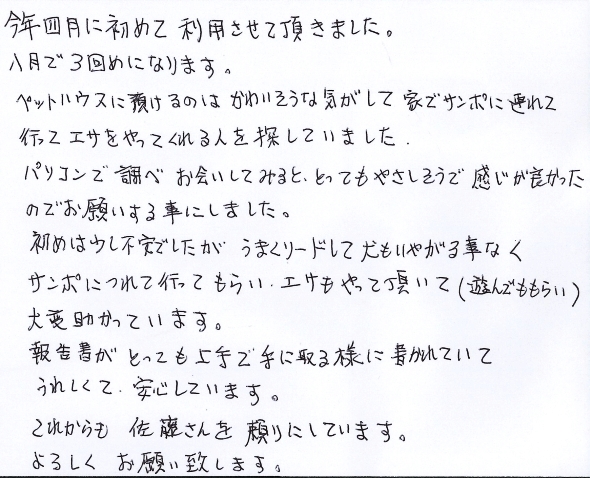 今年四月に初めて利用させて頂きました。
八月で3回めになります。
ペットハウスに預けるのはかわいそうな気がして家でサンポに連れて
行ってエサをやってくれる人を探していました.
パソコンで調べお会いしてみると、とってもやさしそうで感じが良かった
のでお願いする事にしました。
初めは少し不安でしたがうまくリードして犬もいやがる事なく
サンポにつれて行ってもらい.エサもやって頂いて(遊んでももらい)
大変助かっています。
報告書がとっても上手で手に取る様に書かれていて
うれしくて、安心しています。
これからも佐藤さんを頼りにしています。
よろしくお願い致します。